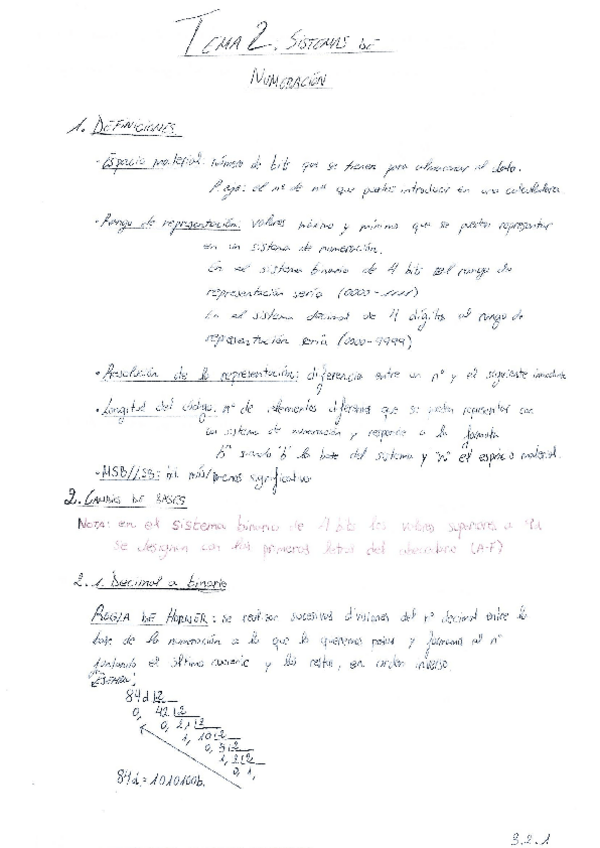 TEMA 2. SISTEMAS DE
NUMERACIÓN
1. DEFINICIONES
- Espacio material: número de bits que se tienen para almacenar el dato.
P. ejo: el nº de nos que puedes introducir en una calculadora.
- Rango de representación: valores máximo y mínimo que se pueden representar
en un sistema de numeración.
En el sistema binario de 4 bits el rango de
representación sería (0000-1111)
En el sistema decimal de 4 dígitos el rango de
representación sería (0000-9999)
- Resolución de la representación: diferencia entre un nº y el siguiente inmediato
- Longitud del código: nº de elementos diferentes que se pueden representar con
un sistema de numeración y responde a la formula
bⁿ siendo 'b' la base del sistema y 'n' el espacio material.
- MSB//LSB: bit más/menos significativo
2. CAMBIO DE BASES
NOTA: en el sistema binario de 4 bits los valores superiores a
se designan con las primeras letras del abecedario (A-F)
2.1. Decimal a binario
REGLA DE HORNER: se realizan sucesivas divisiones del nº decimal entre la
base de la numeración a la que la queremos pasar y formamos el nº
juntando el último cociente y los restos, en orden inverso.
84d 2
0, 42 2
0, 21 2
1, 10 2
0, 5 2
1, 2 2
0, 1,
84d = 1010100b.
3.2.1